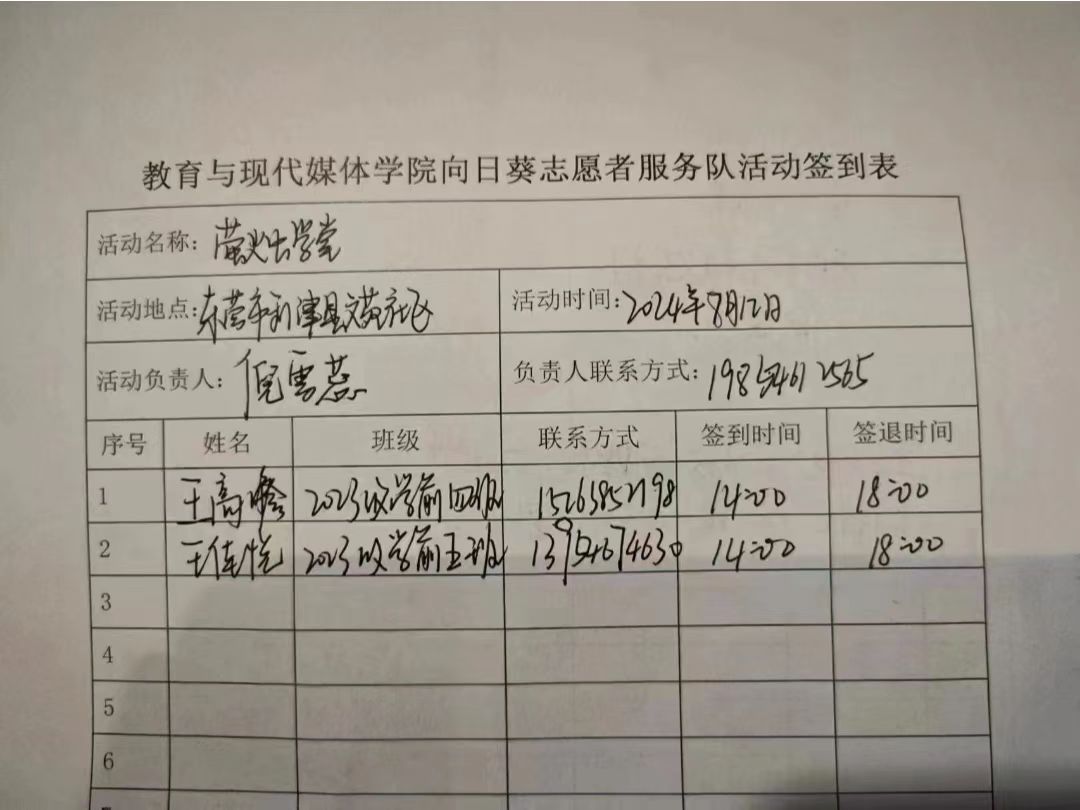 教育与现代媒体学院向日葵志愿者服务队活动签到表
活动名称: 萤火虫学堂
活动地点: 东营市利津县文苑社区 活动时间: 2024年8月12日
活动负责人: 倪雪蕊 负责人联系方式: 612565
序号 姓名 班级 联系方式 签到时间 签退时间
1 王高 2023级学前四班 15263852198 14:00 18:00
2 王佳悦 2023级学前五班 13954674630 14:00 18:00
3
4
5
6